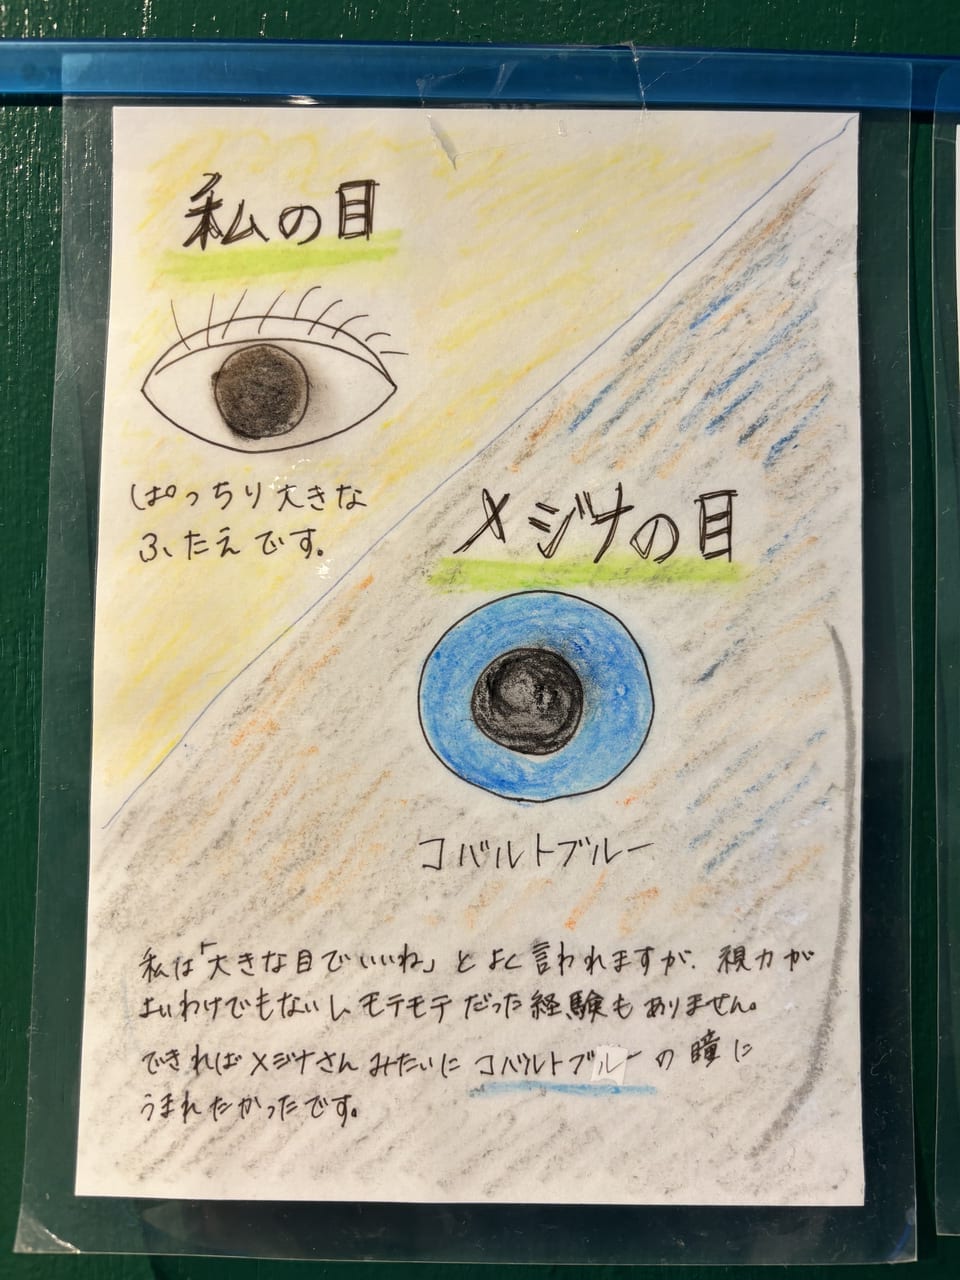 私の目
ぱっちり大きな
ふたえです。
メジナの目
コバルトブルー
私は「大きな目でいいね」とよく言われますが、視力が
よいわけでもないし、モテモテだった経験もありません。
できればメジナさんみたいにコバルトブルーの瞳に
うまれたかったです。